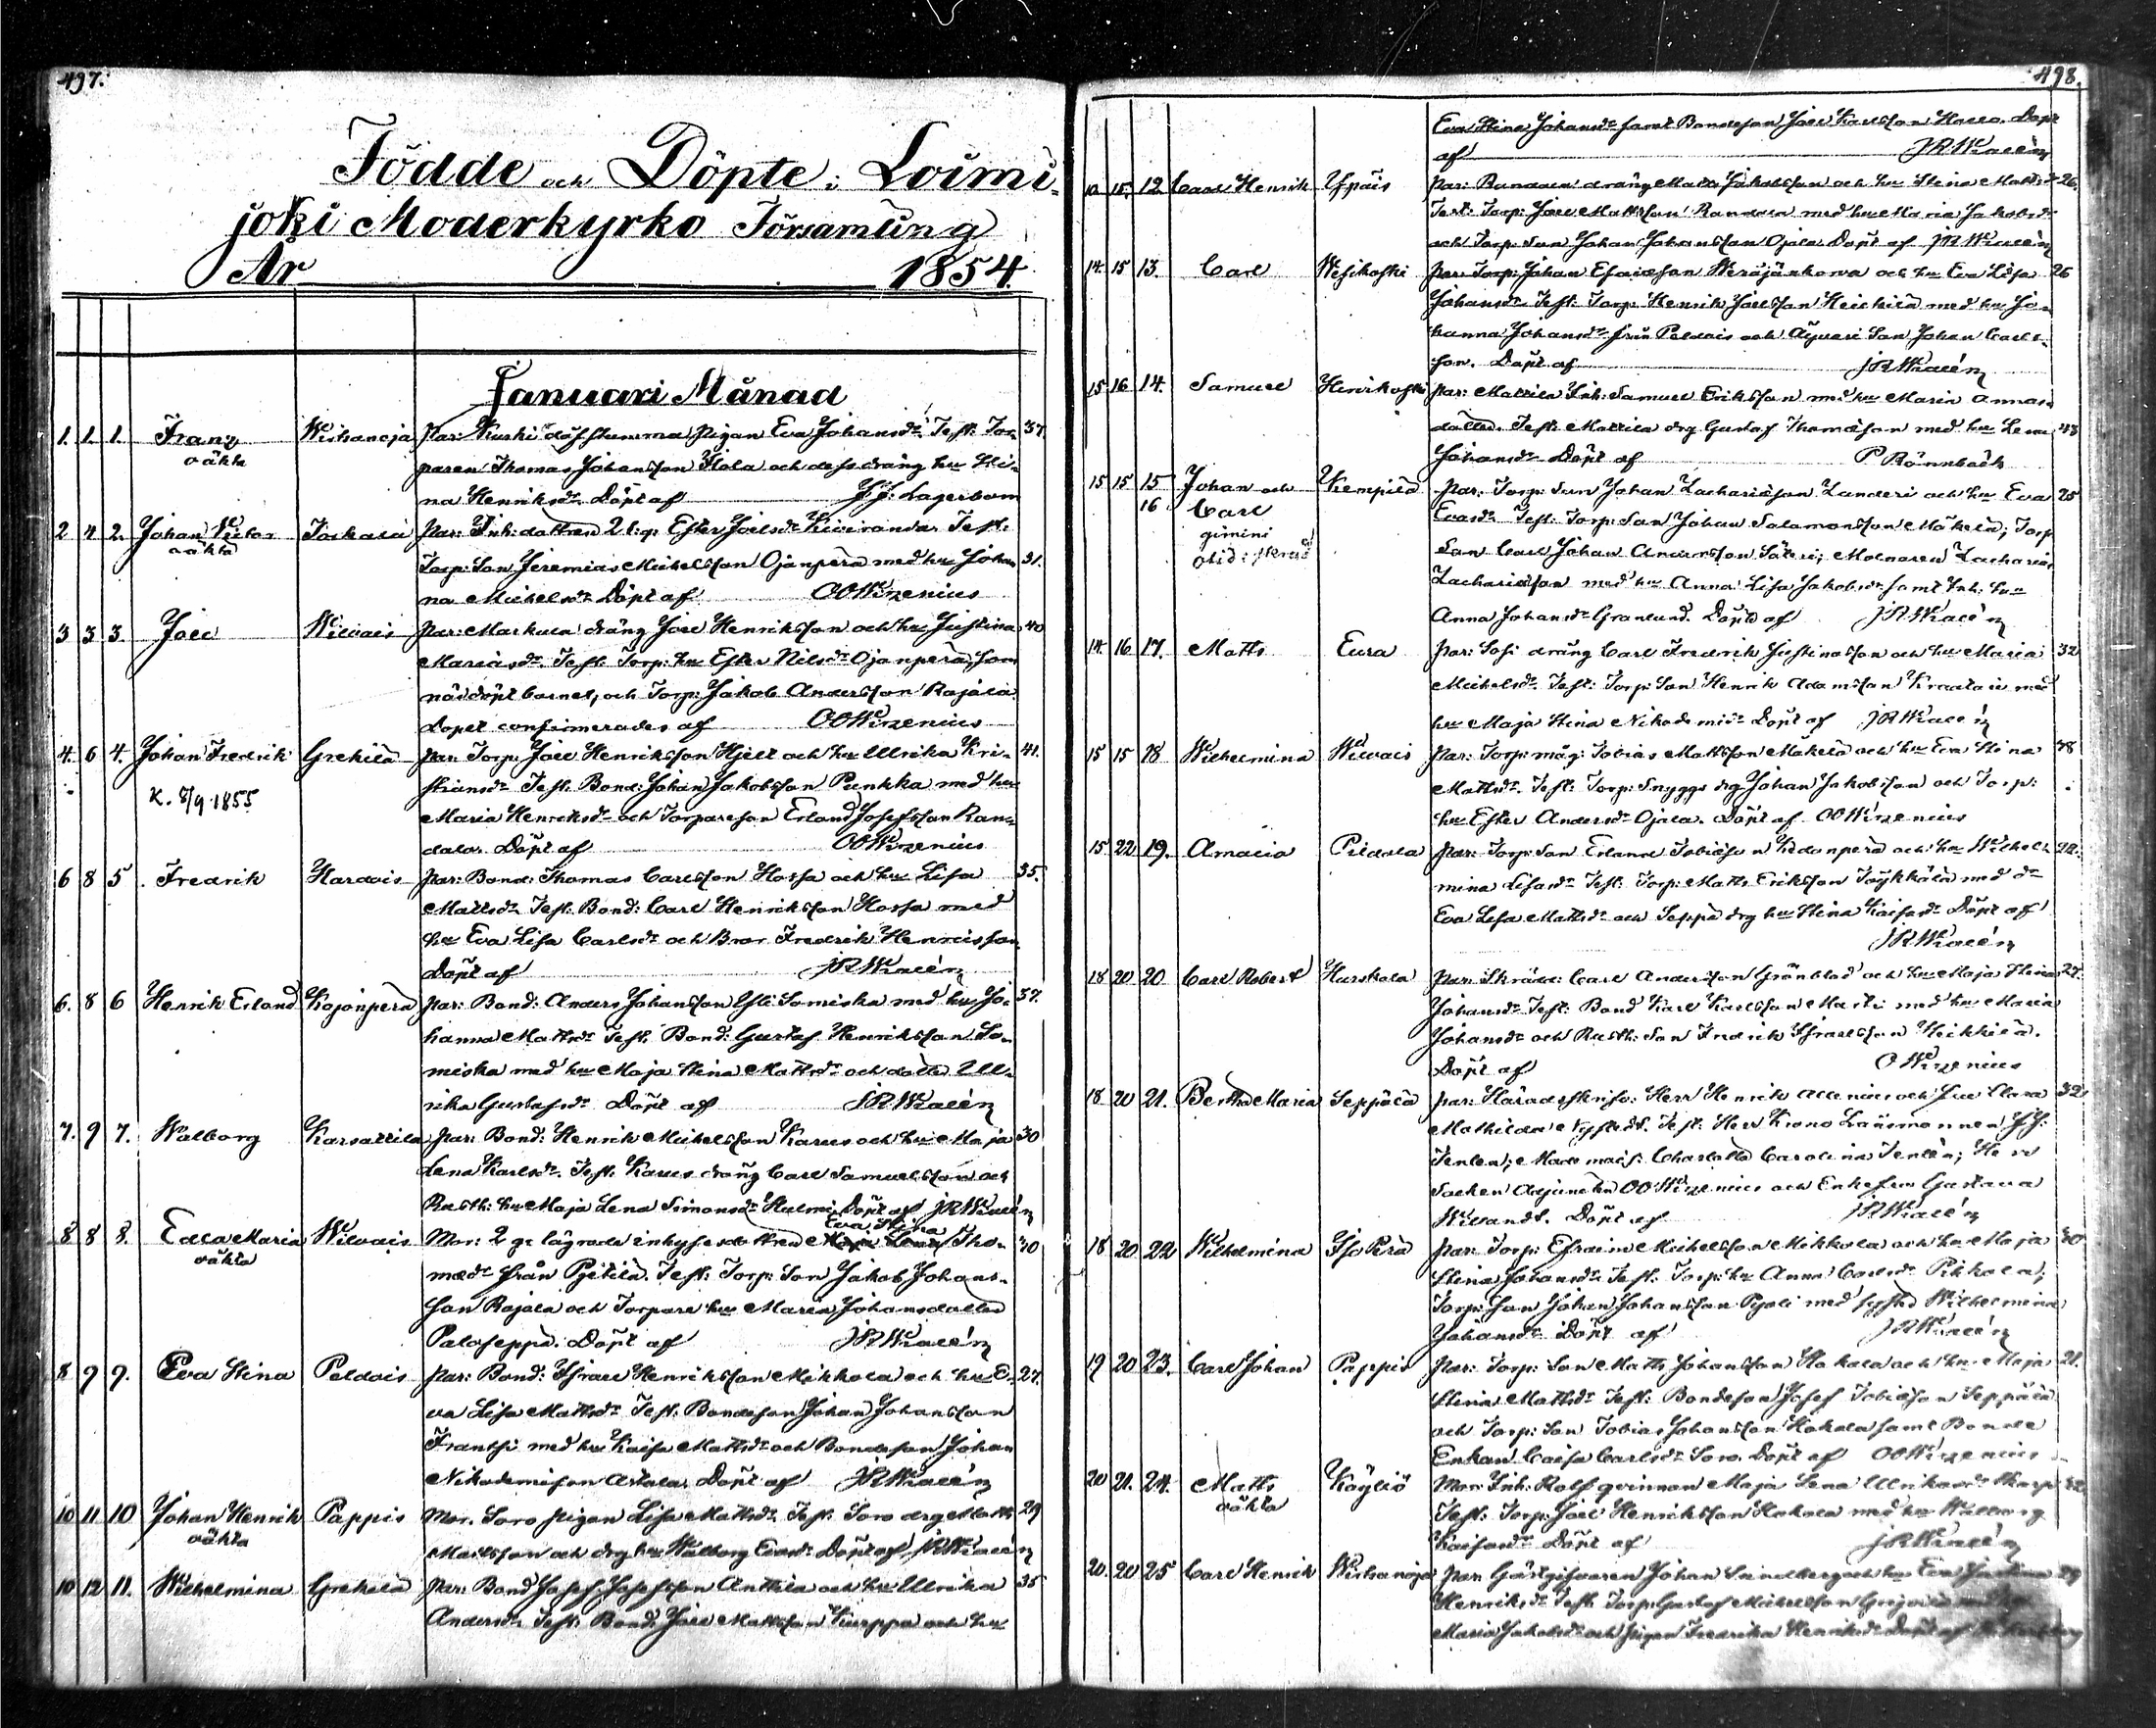 497.
Födde och Döpte i Loimi-
joki Moderkyrko Församling
År 1854.
Januari Månad
1. 1. 1. Franz Wirhanoja Par: Kurki döfstumma pigan Eva Johansdr Test: Tor- 37.
oäkta paren Thomas Johansson Flola och dess dräng hu Sti-
na Henriksdr Döpt af J.J. Lagerbom
2 4 2. Johan Victor Torkala Par: Inh: dottren 2 l: g: Ester Joelsdr Test:
oäkta Torp: Son Jeremias Michelsson Ojanperä med hu Johan 31.
na Michelsdr Döpt af OOWirzenius
3 3 3. Joel Wilvais Par: Markula dräng Joel Henriksson och hu Justina 40
Mariasdr Test: Torp: hu Ester Nilsdr Ojanperä, som
nöddöpt barnet, och Torp: Jakob Andersson Rajala
Dopet confirmerades af OOWirzenius
4. 6 4. Johan Fredrik Grekilä Par: Torp: Joel Henriksson Hjelt och hu Ulrika Kri- 41.
stiansdr Test: Bond: Johan Jakobsson Punkka med hu
K. 8/9 1855 Maria Henriksdr och Torpareson Erland Josefsson Ran-
dala. Döpt af OOWirzenius
6 8 5. Fredrik Hardois Par: Bond: Thomas Carlsson Hossa och hu Lisa 35.
Mattsdr Test: Bond: Carl Henriksson Hossa med
hu Eva Lisa Carlsdr och Bror Fredrik Henricsson
Döpt af JRWialén
6. 8 6 Henrik Erland Kojonperä Par: Bond: Anders Johansson Yli Somiska med hu Jo- 37.
hanna Mattsdr Test: Bond: Gustaf Henriksson So-
miska med hu Maja Stina Mattsdr och dotter Ull-
rika Gustafsdr Döpt af JRWialén
7. 9 7. Walborg Karsattila Par: Bond: Henrik Michelsson Karus och hu Maja 30
Lena Karlsdr. Test: Karus dräng Carl Samuelsson och
Rusth: hu Maja Lena Simonsdr Hulmi Döpt af JRWialén
Eva Stina
8 8 8. Edla Maria Wilvais Mor: 2 ge lägrade inhysesdottren Thо- 30
oäkta masdr från Pejtilä. Test: Torp: Son Jakob Johans-
son Rajala och Torpare hu Maria Johansdotter
Paloseppä. Döpt af JRWialén
8 9 9. Eva Stina Peldois Par: Bond: Isrаel Henriksson Mikkola och hu E- 27.
va Lisa Mattsdr Test: Bondeson Johan Johansson
Frantsi med hu Kaisa Mattsdr och Bondeson Johan
Nikodemisson Astala. Döpt af JRWialén
10 11 10 Johan Henrik Pappis Mor. Soro pigan Lisa Mattsdr Test: Soro drg Matts 29
oäkta Mattsson och drg hu Walborg Evasdr Döpt af JRWialén
10 12 11. Wilhelmina Grekilä Par: Bond: Josef Josefsson Anttila och hu Ullrika 35
Andersdr Test: Bond: Joel Mattsson Kurppa och hu
498.
Eva Stina Johansdr samt Bondeson Joel Karlsson Döpt
af JRWialén
10 15. 12 Carl Henrik Ypäis Par: Randala dräng Matts Jakobsson och hu Stina Mattsdr 26.
Test: Torp: Joel Mattsson Randala med hu Maria Jakobsdr
och Torp: Son Johan Johansson Ojala Döpt af JRWialén
14. 15 13. Carl Wesikoski Par: Torp: Johan Esaiasson Weräjänkorva och hu Eva Lisa 26
Johansdr Test: Torp: Henrik Joelsson Heickilä med hu Jo-
hanna Johansdr från Peldois och Äyväri Son Johan Carls-
son. Döpt af JRWialén
15 16 14. Samuel Hirvikoski Par: Mattila Inh: Samuel Eriksson med hu Maria Annas-
dotter. Test: Mattila drg Gustaf Thomasson med hu Lena 43
Johansdr Döpt af P Rönnbäck
15 15 15 Johan och Kempilä Par: Torp: Son Johan Zachariasson Landeri och hu Eva 25
16 Carl Evasdr Test: Torp: Son Johan Salamonsson Mäkelä; Torp:
gimini Son Carl Johan Andersson Säteri; Molnaren Zacharias
Zachariasson med hu Anna Lisa Jakobsdr samt Inh: hu
Anna Johansdr Granlund. Döpte af JRWialén
14 16 17. Matts Eura Par: Sosi dräng Carl Fredrik Justinasson och hu Maria 32
Michelsdr Test: Torp: Son Henrik Adamsson med
hu Maja Stina Nikodemisdr Döpt af JRWialén
15 15 18 Wilhelmina Wilvais Par: Torp: måg Tobias Mattsson Mäkelä och hu Eva Stina 48
Mattsdr. Test: Torp: Snyggs drg Johan Jakobsson och Torp:
hu Ester Andersdr Ojala. Döpt af OOWirzenius
15 22 19. Amalia Pildala Par: Torp: Son Erland Tobiasson Kidonperä och hu Wilhel-
mina Lisasdr Test: Torp: Matts Eriksson Töykkälä med dr
Eva Lisa Mattsdr och Seppä drg hu Stina Kaisasdr Döpt af
JRWialén
18 20 20 Carl Robert Hurskala Par: Skräd: Carl Andersson Grönblad och hu Maja Stina 27.
Johansdr Test: Bond Karl Karlsson Martti med hu Maria
Johansdr och Rusth: Son Fredrik Isrаelsson Heikkilä.
Döpt af OWirzenius
18 20 21. Bertha Maria Seppälä Par: Häradsskrifv: Herr Henrik Allenius och Fru Clara 32
Mathilda Nystedt. Test: Herr Krono Länsmannen JJ:
Tenlen; Mademais: Charlotta Carolina Tenlén; Herr
Socken Adjunkten OOWirzenius och Enkefru Gustava
Willandt. Döpt af JRWialén
18 20 22 Wilhelmina Iso Perä Par: Torp: Efraim Michelsson Mikkola och hu Maja 30
Stina Johansdr Test: Torp: hu Anna Carlsdr Pikkola;
Torp: Son Johan Johansson med syster Wilhelmina
Johansdr Döpt af JRWialén
19 20 23. Carl Johan Pappis Par: Torp: Son Matts Johansson Hakala och hu Maja 21.
Stina Mattsdr Test: Bondeson Josef Tobiasson Seppälä
och Torp: Son Tobias Johansson Hakala samt Bonde
Enkan Caisa Carlsdr Soro. Döpt af OOWirzenius
20 21. 24. Matts Köyliö Mor: Inh: Rolf qvinnan Maja Lena Ulrikasdr
oäkta Test: Torp: Joel Henriksson Hakala med hu Walborg
Kaisasdr Döpt af JRWialén
20. 20 25 Carl Henrik Wirhanoja Par: Gästgifvaren Johan Lindberg och hu Eva 29
Henriksdr Test: Torp: Gustaf Michelsson
Maria Jakobsdr och pigan Fredrika Henriksdr Döpt af